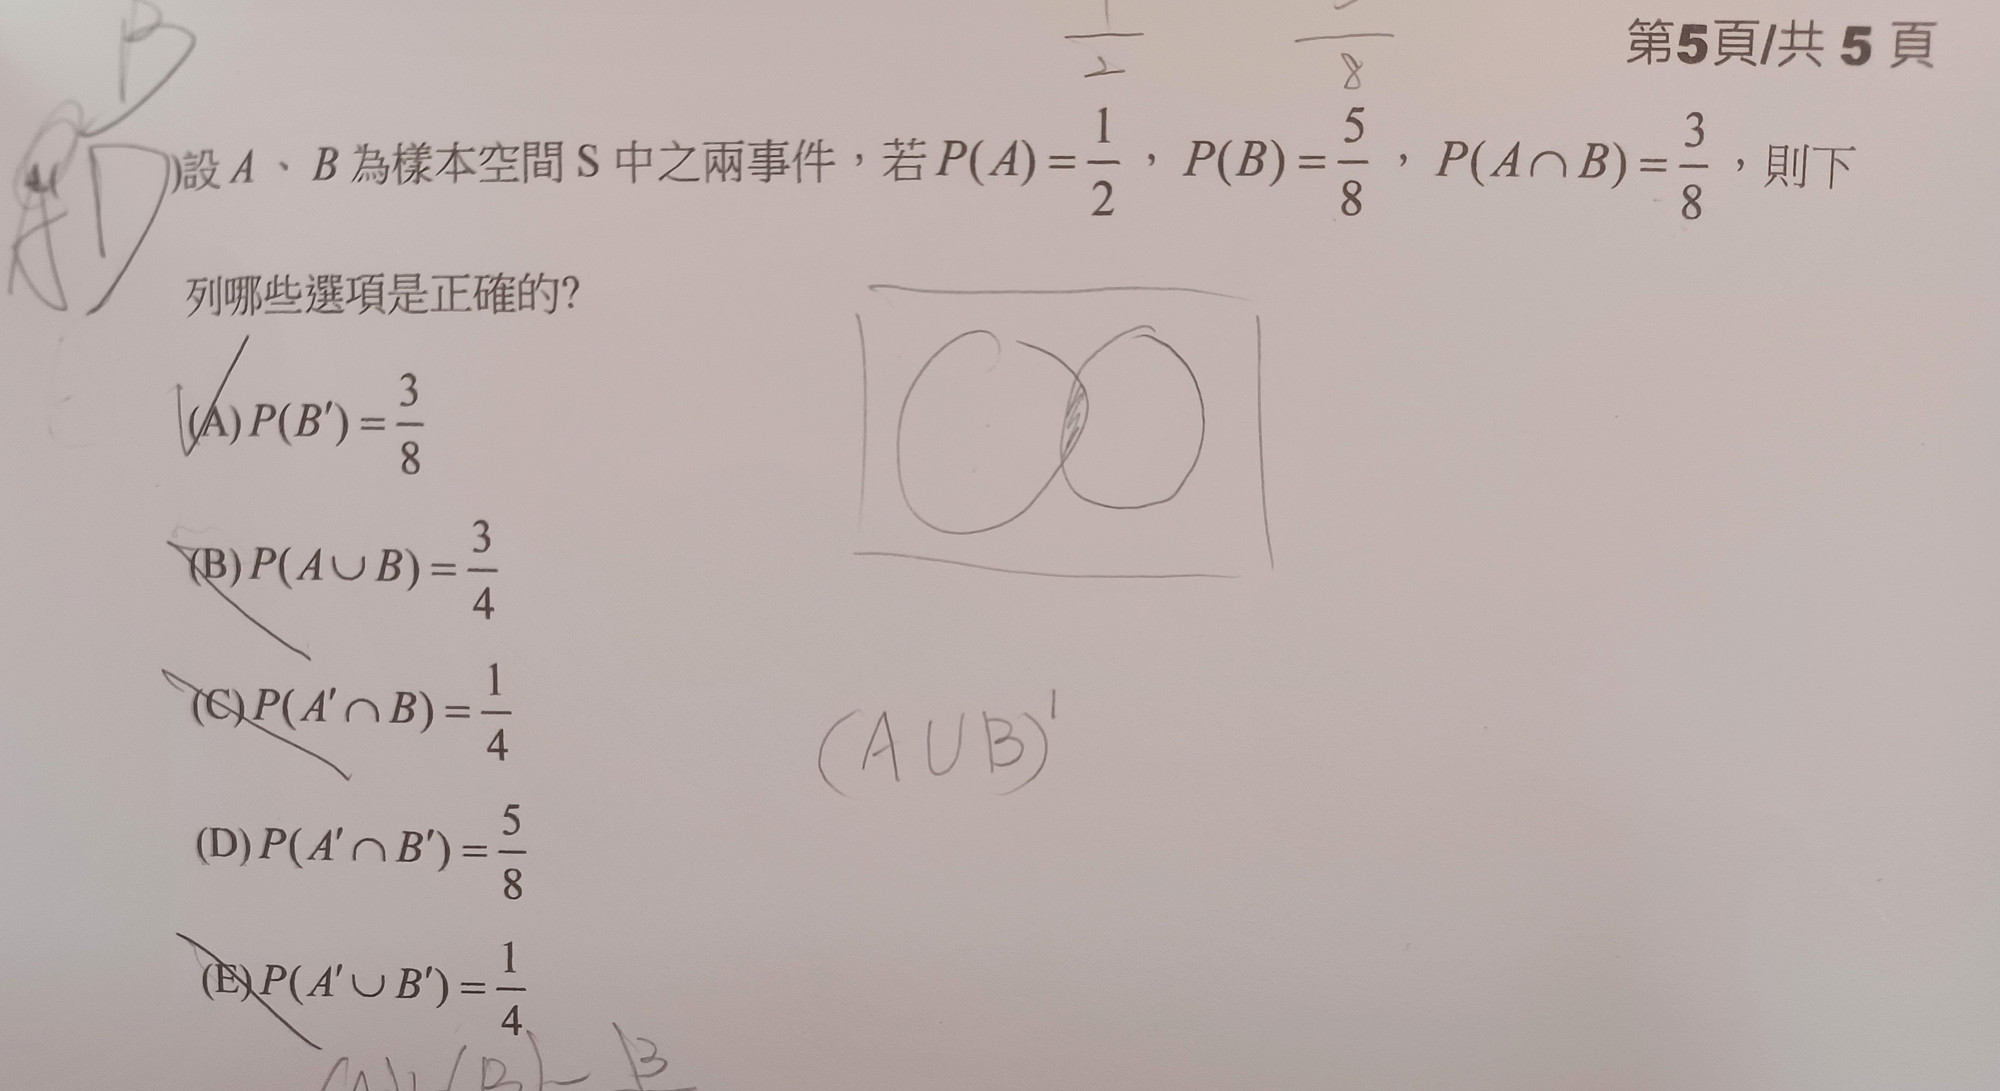 第5頁/共 5 頁
B
1/2 /8
A D
)設 A、B 為樣本空間 S 中之兩事件，若 P(A) = 1/2，P(B) = 5/8，P(A∩B) = 3/8，則下
列哪些選項是正確的?
(A) P(B′) = 3/8
(B) P(A∪B) = 3/4
(C) P(A′∩B) = 1/4
(A∪B)'
(D) P(A′∩B′) = 5/8
(E) P(A′∪B′) = 1/4